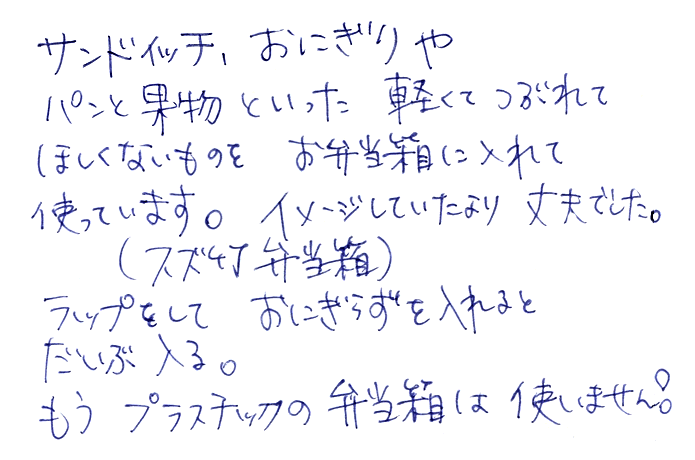 サンドイッチ、おにぎりや
パンと果物といった 軽くてつぶれて
ほしくないものを お弁当箱に入れて
使っています。イメージしていたより 丈夫でした。
(スズ竹弁当箱)
ラップをして おにぎらずを入れると
だいぶ入る。
もう プラスチックの弁当箱は 使いません!